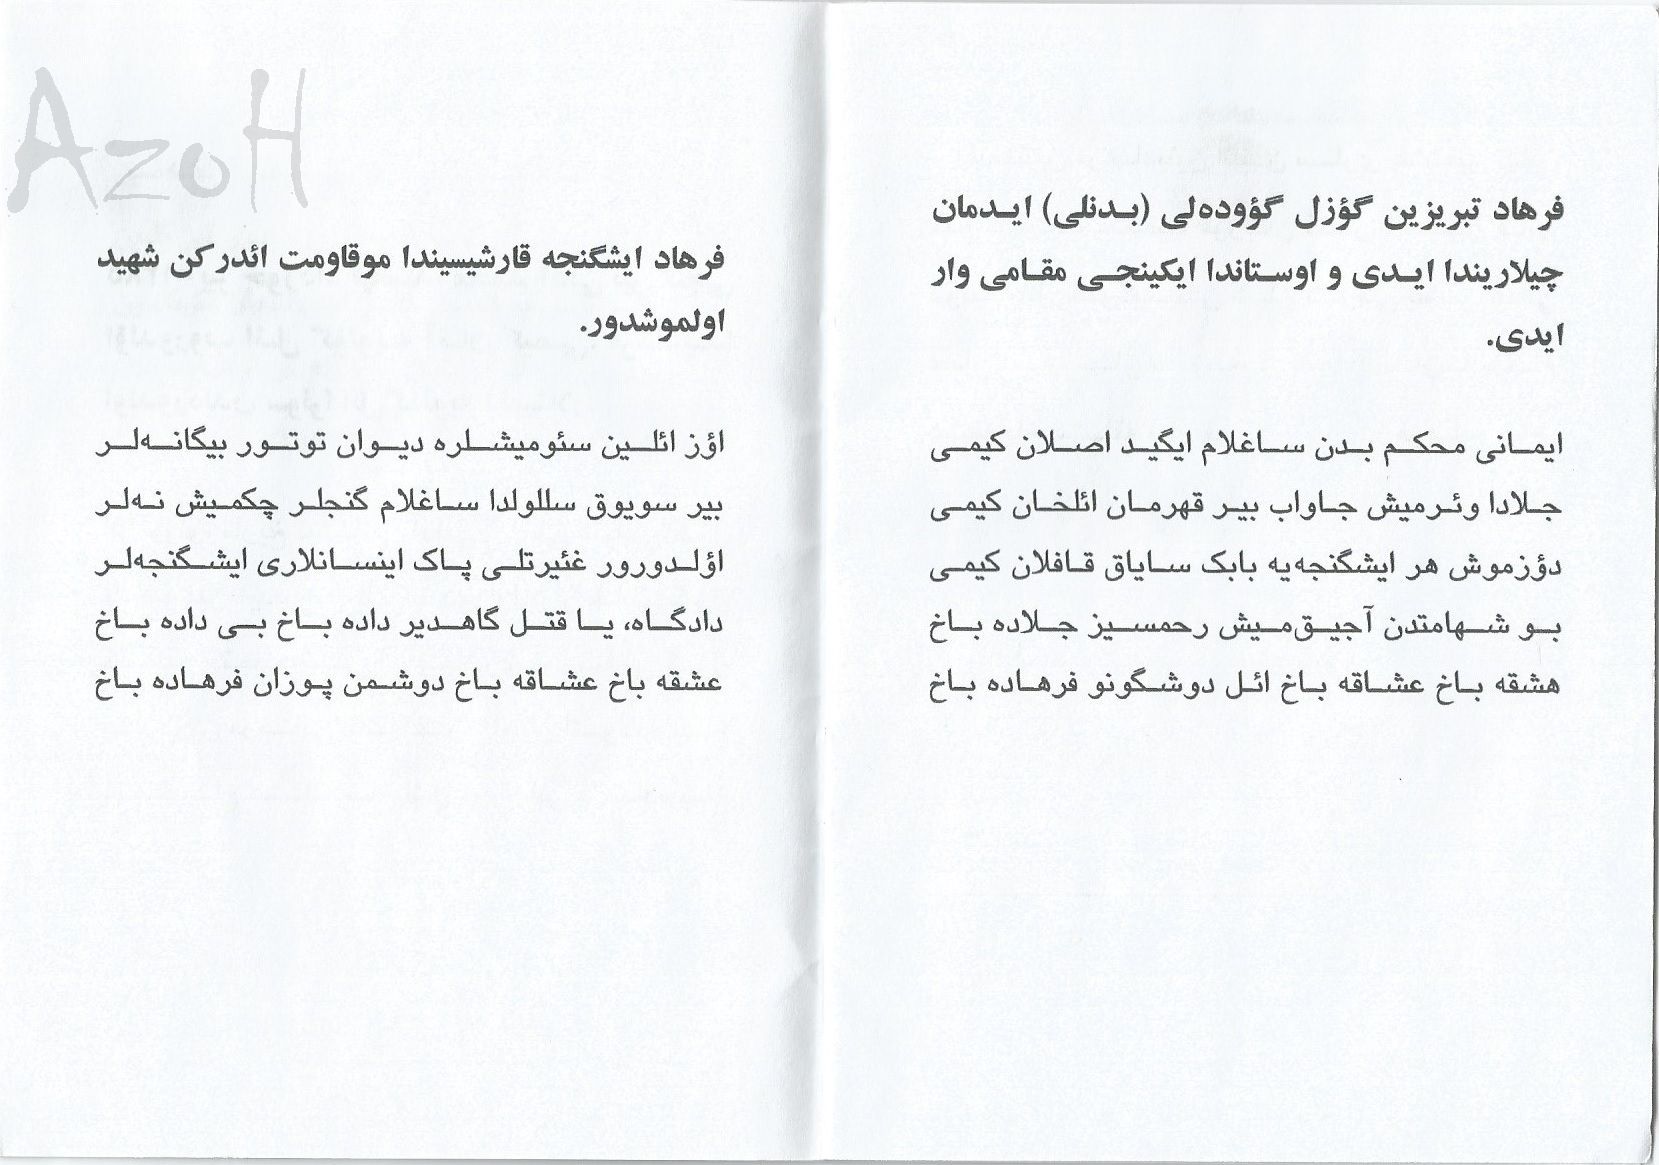 فرهاد تبریزین گؤزل گؤوده‌لی (بدنلی) ایدمان
چیلاریندا ایدی و اوستاندا ایکینجی مقامی وار
ایدی.
ایمانی محکم بدن ساغلام ایگید اصلان کیمی
جلادا وئرمیش جاواب بیر قهرمان ائلخان کیمی
دؤزموش هر ایشگنجه‌یه بابک سایاق قافلان کیمی
بو شهامتدن آجیق‌میش رحمسیز جلاده باخ
هشقه باخ عشاقه باخ ائل دوشگونو فرهاده باخ
فرهاد ایشگنجه قارشیسیندا موقاومت ائدرکن شهید
اولموشدور.
اؤز ائلین سئومیشلره دیوان توتور بیگانه‌لر
بیر سویوق سللولدا ساغلام گنجلر چکمیش نه‌لر
اؤلدورور غئیرتلی پاک اینسانلاری ایشگنجه‌لر
دادگاه، یا قتل گاهدیر داده باخ بی داده باخ
عشقه باخ عشاقه باخ دوشمن پوزان فرهاده باخ
AzoH